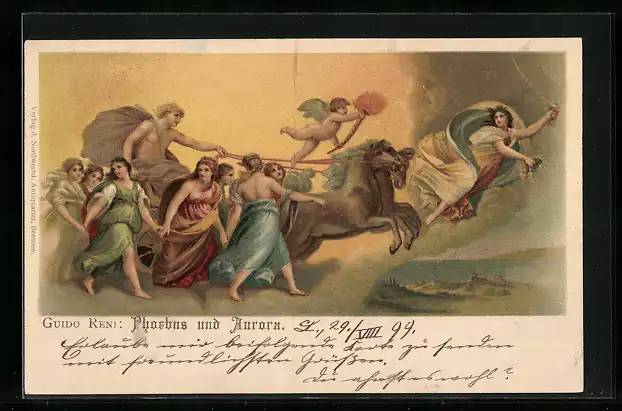 Verlag d. Nordwestd. Antiquariat, Bremen.
GUIDO RENI: Phoebus und Aurora. L., 29./VIII 99.
Erlaube mir beifolgende Karte zu senden
mit freundlichsten Grüßen.
Du